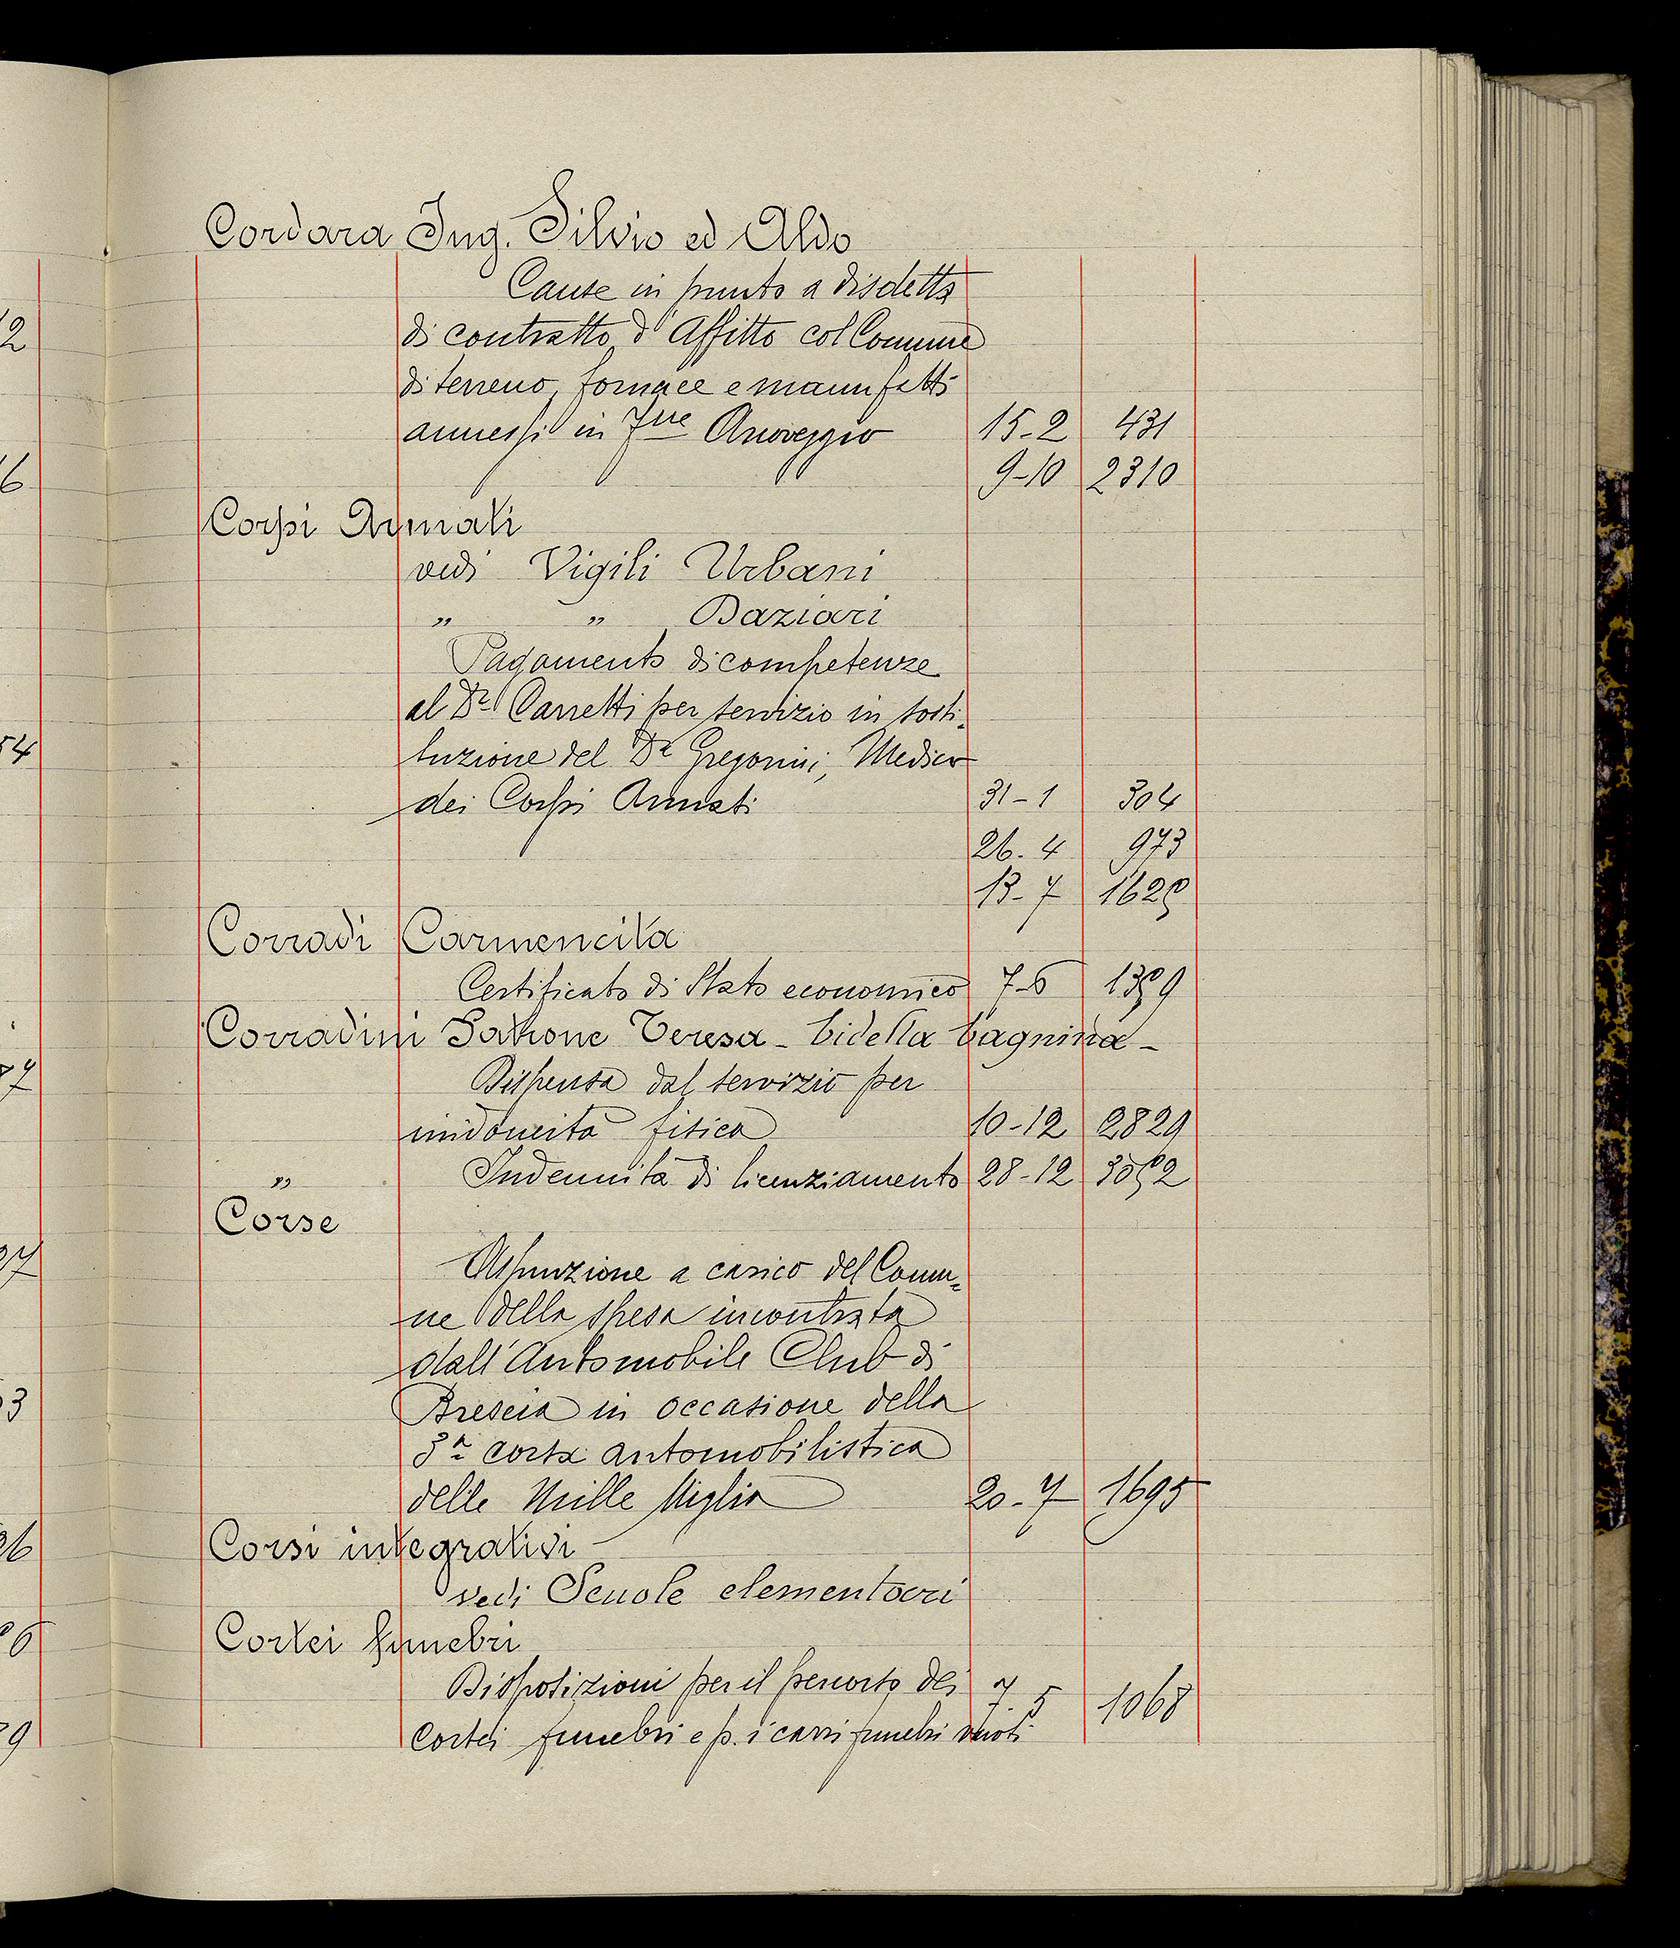 Cordara Ing. Silvio ed Aldo
Cause in punto a disdetta
di contratto d'Affitto col Comune
di terreno, fornace e manufatti
annessi in Fne Anoveggio 15-2 431
9-10 2310
Corpi Armati
vedi Vigili Urbani
" " Daziari
Pagamento di competenze
al Dr Canetti per servizio in sosti-
tuzione del Dr Gregorini, Medico
dei Corpi Armati 31-1 304
26-4 973
13-7 1628
Corradi Carmencita
Certificato di Stato economico 7-6 1389
Corradini Patrone Teresa - bidella bagnina -
Dispensa dal servizio per
inidoneità fisica 10-12 2829
" Indennità di licenziamento 28-12 3082
Corse
Assunzione a carico del Comu-
ne della spesa incontrata
dall'Automobile Club di
Brescia in occasione della
3a corsa automobilistica
delle Mille Miglia 20-7 1695
Corsi integrativi
vedi Scuole elementari
Cortei funebri
Disposizioni per il percorso dei 7-5 1068
cortei funebri e p. i carri funebri vuoti
2
6
54
87
3
36
9